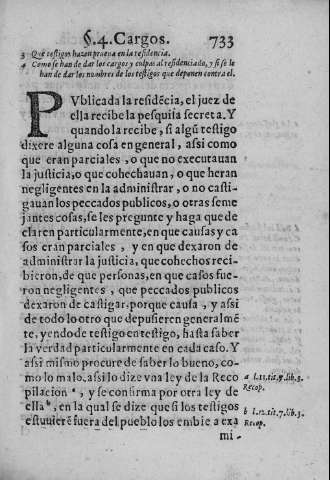 §.4. Cargos. 733
3 Que testigos hazen prueua en la residencia.
4 Como se han de dar los cargos y culpas al residenciado, y si se le
han de dar los nombres de los testigos que deponen contra el.
PVblicada la residẽcia, el juez de
ella recibe la pesquisa secreta. Y
quando la recibe, si algũ testigo
dixere alguna cosa en general, assi como
que eran parciales, o que no executauan
la justicia, o que cohechauan, o que heran
negligentes en la administrar, o no casti-
gauan los peccados publicos, o otras seme
jantes cosas, se les pregunte y haga que de
claren particularmente, en que causas y ca
sos eran parciales, y en que dexaron de
administrar la justicia, que cohechos reci-
bieron, de que personas, en que casos fue-
ron negligentes, que peccados publicos
dexaron de castigar, porque causa, y assi
de todo lo otro que depusieren generalmẽ
te, yendo de testigo en testigo, hasta saber
la verdad particularmente en cada caso. Y
assi mismo procure de saber lo bueno, co-
mo lo malo, assi lo dize vna ley de la Reco
pilacion ᵃ, y se confirma por otra ley de
ella ᵇ, en la qual se dize que si los testigos
estuuierẽ fuera del pueblo los embie a exa
mi-
a l.11.tit.7.lib.3.
Recop.
b l.12.tit.7.lib.3.
Recop.